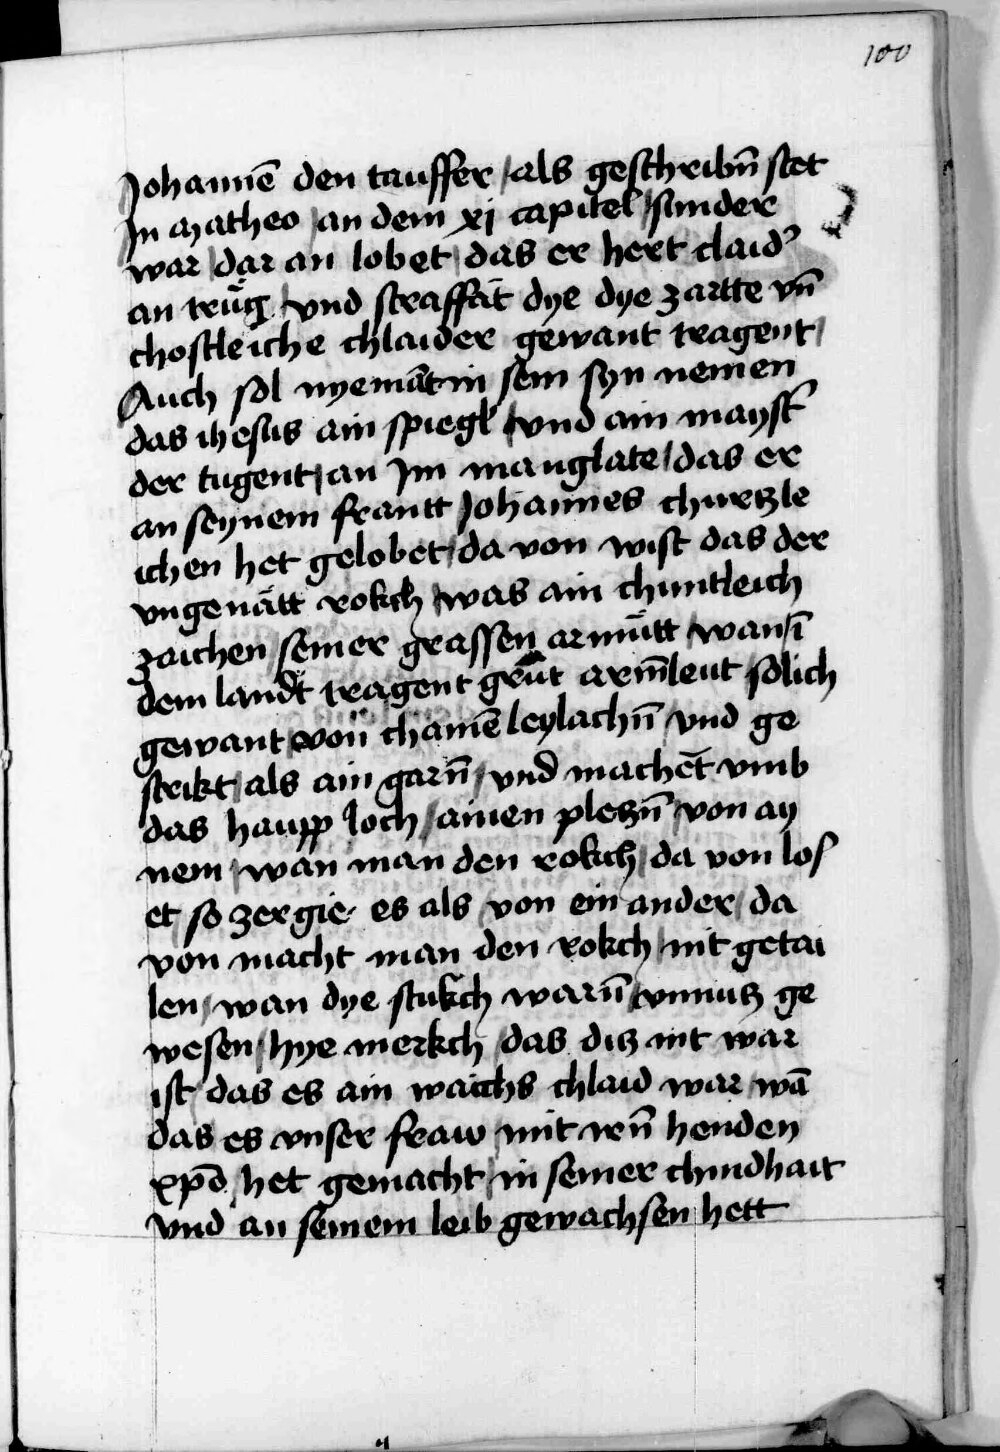 100
Johannē den tauffer / als geschribn̄ stet
Jn matheo / an dem xj capitel / sunder
war / dar an lobet / das er hert claid'
an trůg / vnd straffāt dye dye zartte vn̄
chostleiche chlaider gewant tragent /
Auch sol nyemāt in sein syn nemen
das ihesus ain spiegl / vnd ain mayst'
der tugent / an Jm manglate / das er
an seynem frantt Johannes chürtzle
ichen het gelobet / da von wist das der
vngenätt rokch / was ain chuntleich
zaichen / seiner grassen armůtt / wan ī
dem landt tragent arm̄leut solich
gewant von chamē leylachn̄ vnd ge
strikt / als ain garn̄ / vnd machēt vmb
das haupp loch / ainen pletzn̄ von ay
nem / wan man den rokch / da von los
et / so zergie es als / von ein ander / da
von macht man den rokch / nit getai
len / wan dye stukch warn̄ vnnutz ge
wesen / hye merkch / das ditz nit war
ist / das es ain waichs chlaid war / wā
das es vnser fraw / mit irn̄ henden
xpō / het gemacht / in seiner chindhait
vnd an seinem leib gewachsen hett